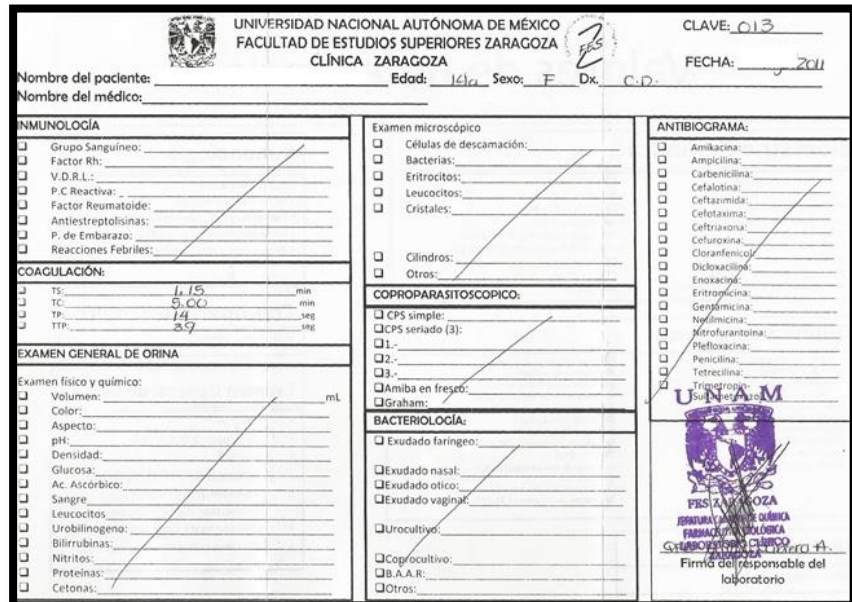 UNIVERSIDAD NACIONAL AUTÓNOMA DE MÉXICO
FACULTAD DE ESTUDIOS SUPERIORES ZARAGOZA
CLÍNICA ZARAGOZA
FES
CLAVE: 013
FECHA: 2011
Nombre del paciente: Edad: 14a Sexo: F Dx. C.D.
Nombre del médico:
INMUNOLOGÍA
Grupo Sanguíneo:
Factor Rh:
V.D.R.L.:
P.C Reactiva:
Factor Reumatoide:
Antiestreptolisinas:
P. de Embarazo:
Reacciones Febriles:
COAGULACIÓN:
TS: 1.15 min
TC: 5.00 min
TP: 14 seg
TTP: 39 seg
EXAMEN GENERAL DE ORINA
Examen físico y químico:
Volumen: mL
Color:
Aspecto:
pH:
Densidad:
Glucosa:
Ac. Ascórbico:
Sangre
Leucocitos
Urobilinogeno:
Bilirrubinas:
Nitritos:
Proteínas:
Cetonas:
Examen microscópico
Células de descamación:
Bacterias:
Eritrocitos:
Leucocitos:
Cristales:
Cilindros:
Otros:
COPROPARASITOSCOPICO:
CPS simple:
CPS seriado (3):
1.-
2.-
3.-
Amiba en fresco:
Graham:
BACTERIOLOGÍA:
Exudado faríngeo:
Exudado nasal:
Exudado otico:
Exudado vaginal:
Urocultivo:
Coprocultivo:
B.A.A.R:
Otros:
ANTIBIOGRAMA:
Amikacina:
Ampicilina:
Carbenicilina:
Cefalotina:
Ceftazimida:
Cefotaxima:
Ceftriaxona:
Cefuroxina:
Cloranfenicol:
Dicloxacilina:
Enoxacina:
Eritromicina:
Gentamicina:
Netilmicina:
Nitrofurantoina:
Pefloxacina:
Penicilina:
Tetrecilina:
Trimetropin-
UNAM
FES ZARAGOZA
LABORATORIO CLÍNICO
ZARAGOZA
Firma del responsable del
laboratorio